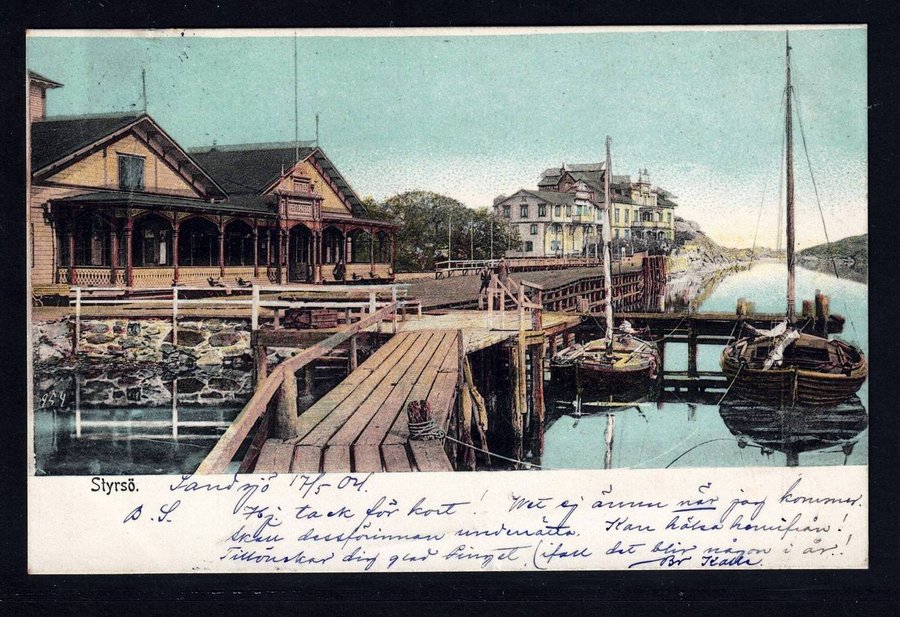 Styrsö.
Sandsjö 17/5 04.
B. S. Hj tack för kort! Wet ej ännu när jag kommer.
Skall dessförinnan underrätta. Kan hälsa hemifrån!
Tillönskar dig glad Pingst, (ifall det blir någon i år!
Br Kalle.